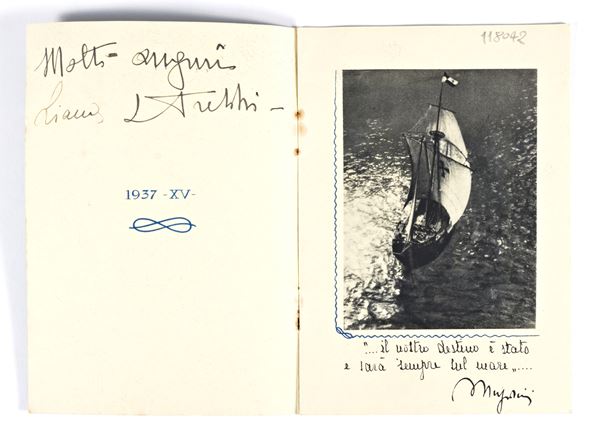 Molti auguri
1937 -XV-
118042
"....il nostro destino è stato
e sarà sempre sul mare„....
Mussolini